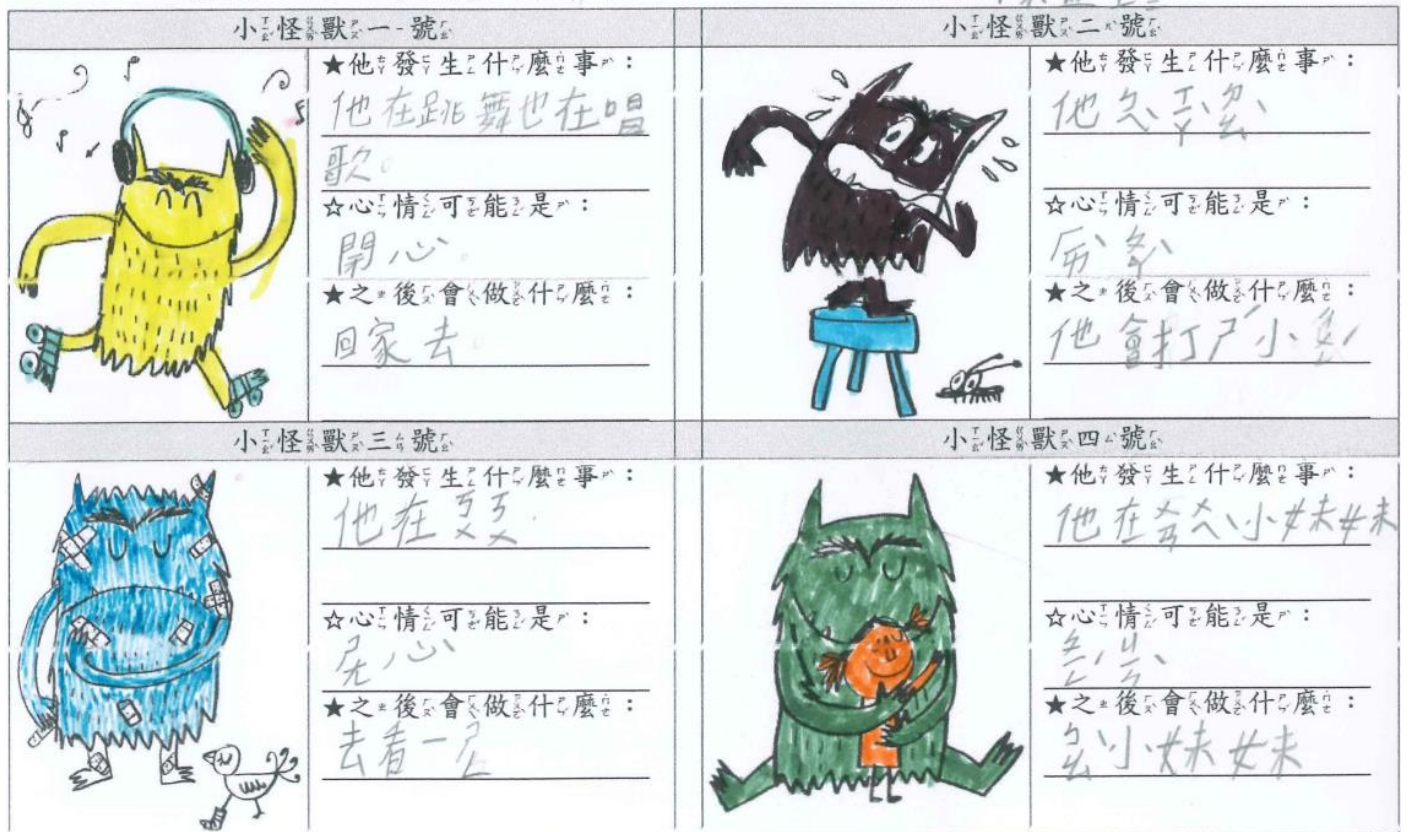 小怪獸一號
★他發生什麼事：
他在跳舞也在唱
歌。
☆心情可能是：
開心。
★之後會做什麼：
回家去。
小怪獸二號
★他發生什麼事：
他ㄅㄟˋㄒㄧㄚˋㄉㄠˋ
☆心情可能是：
ㄏㄞˋㄆㄚˋ
★之後會做什麼：
他會打ㄕˇ小
小怪獸三號
★他發生什麼事：
他在ㄎㄨㄎㄨ.
☆心情可能是：
心
★之後會做什麼：
去看一ㄕㄥ
小怪獸四號
★他發生什麼事：
他在ㄨㄟˋ小妹妹
☆心情可能是：
★之後會做什麼：
ㄅㄠˋ小妹妹